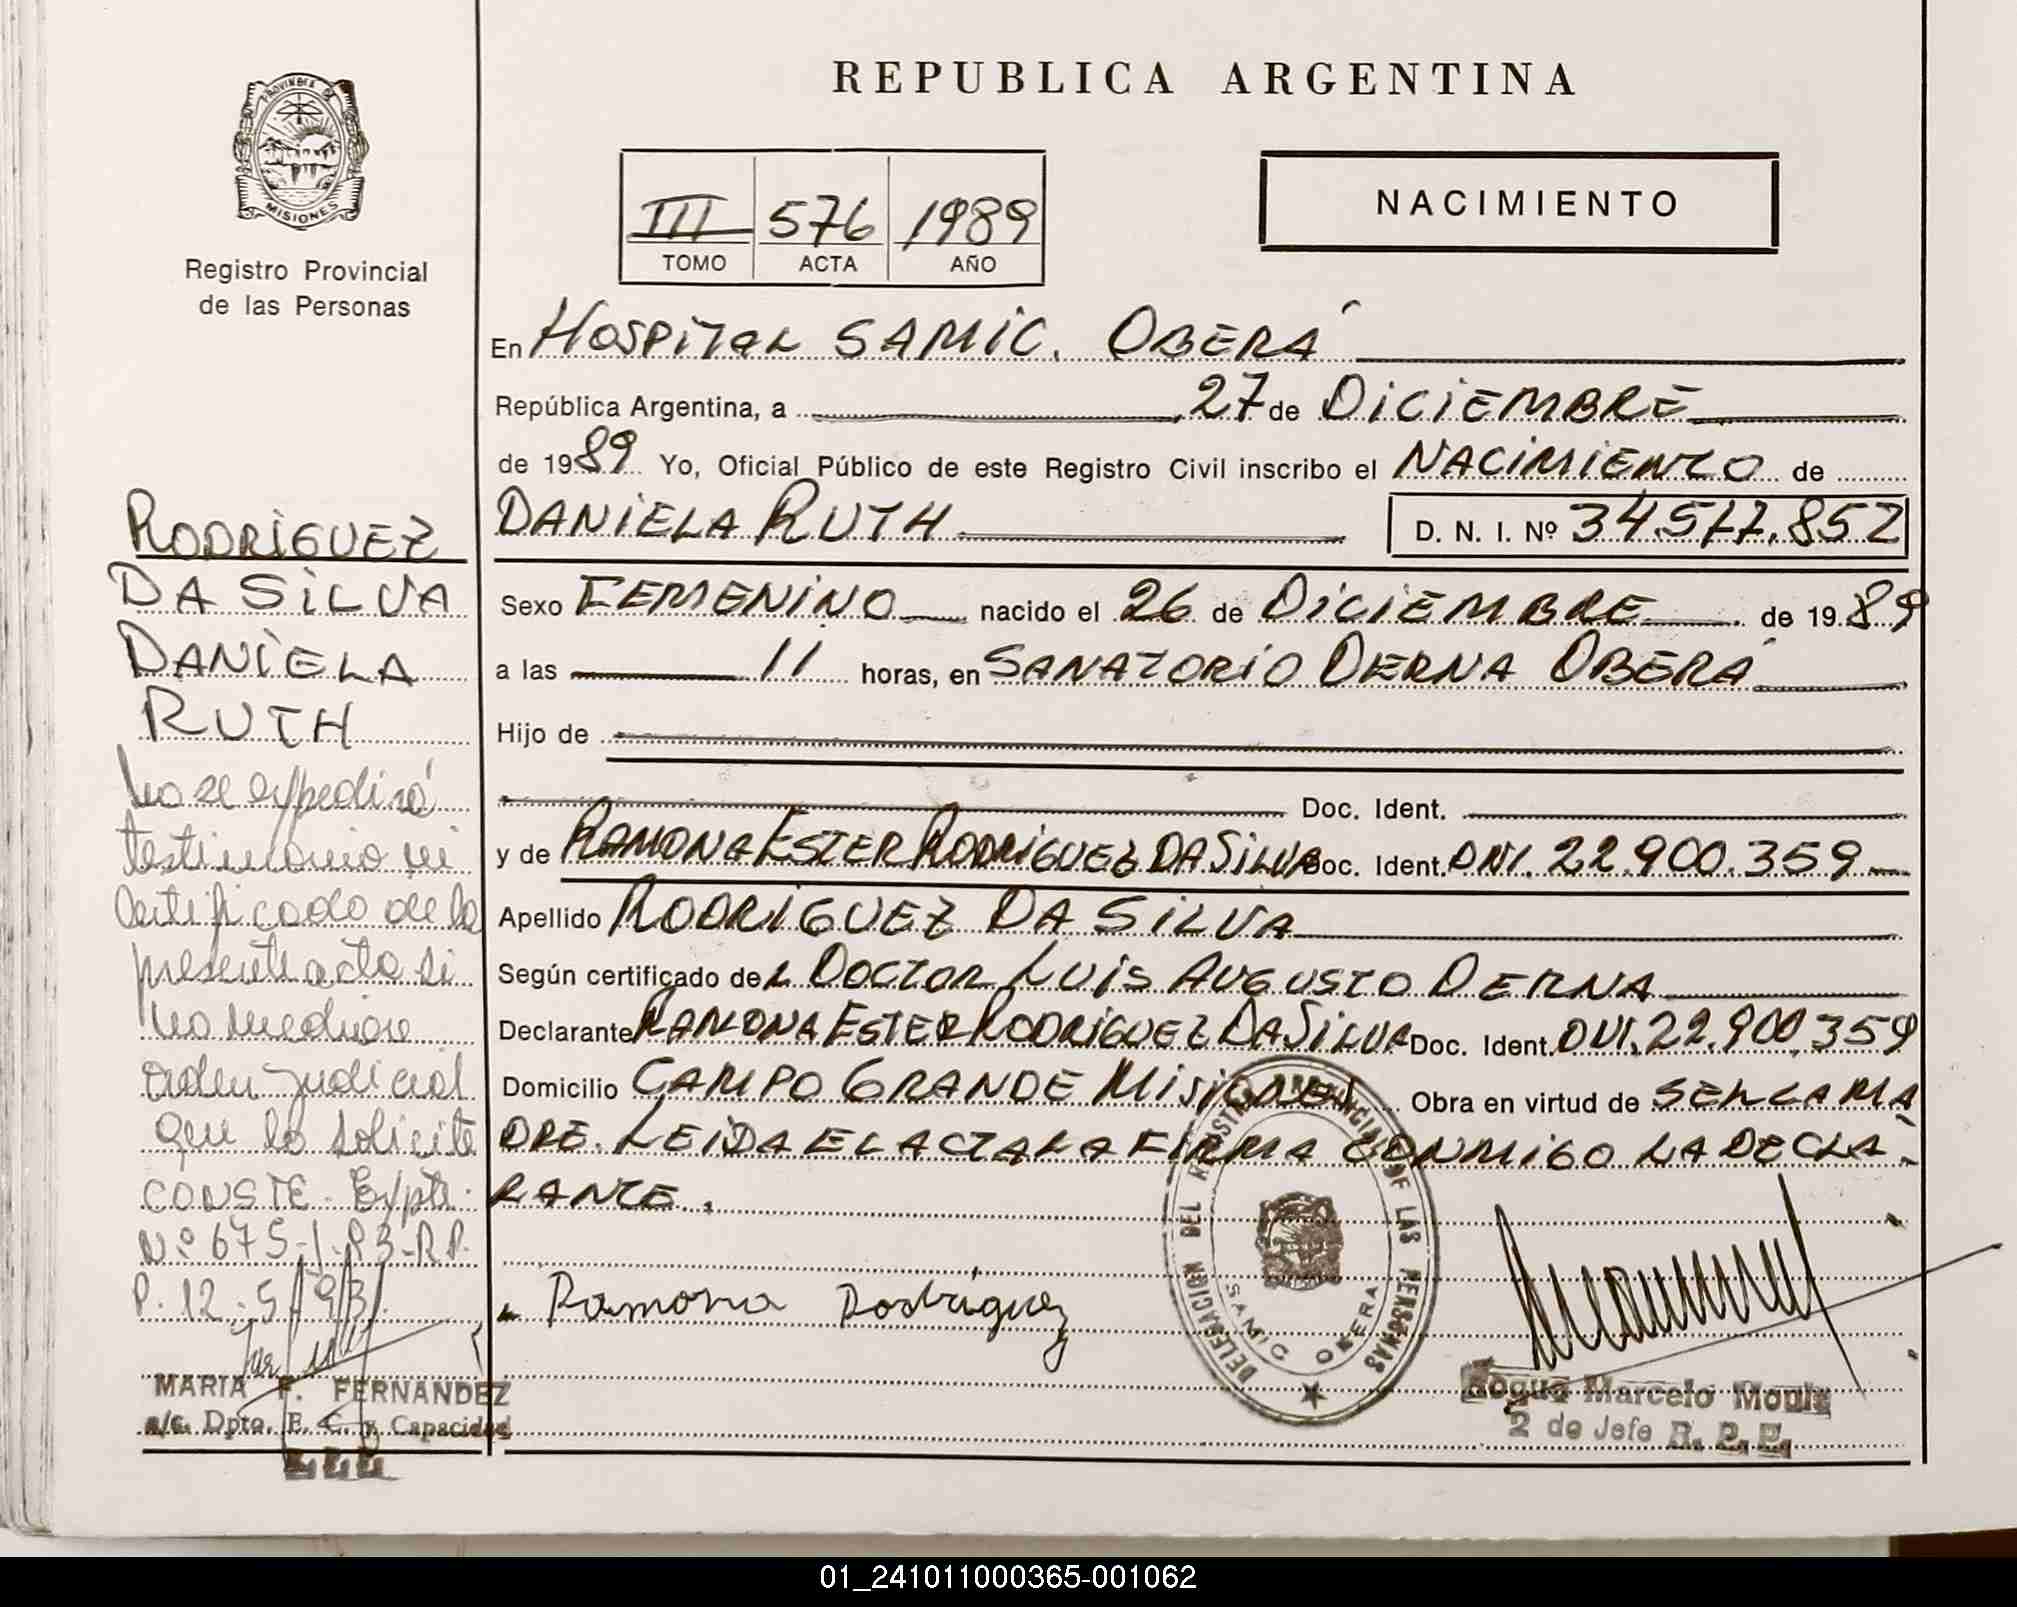 PROVINCIA DE
MISIONES
Registro Provincial
de las Personas
REPUBLICA ARGENTINA
III 576 1989
TOMO ACTA AÑO
NACIMIENTO
En HOSPITAL SAMIC. OBERÁ
República Argentina, a 27 de DICIEMBRE
de 1989 Yo, Oficial Público de este Registro Civil inscribo el NACIMIENTO de
DANIELA RUTH D. N. I. Nº 34.577.852
Sexo FEMENINO nacido el 26 de DICIEMBRE de 1989
a las 11 horas, en SANATORIO DERNA OBERÁ
Hijo de
Doc. Ident.
y de RAMONA ESTER RODRIGUEZ DA SILVA Doc. Ident. DNI. 22.900.359
Apellido RODRIGUEZ DA SILVA
Según certificado del DOCTOR LUIS AUGUSTO DERNA
Declarante RAMONA ESTER RODRIGUEZ DA SILVA Doc. Ident. DNI. 22.900.359
Domicilio CAMPO GRANDE MISIONES Obra en virtud de SER LA MA
DRE. LEIDA EL ACTA LA FIRMA CONMIGO LA DECLA-
RANTE.
Ramona Rodriguez
DELEGACION DEL REGISTRO PROVINCIAL DE LAS PERSONAS
SAMIC OBERA
Roque Marcelo Moniz
2 do Jefe R. P. P.
RODRIGUEZ
DA SILVA
DANIELA
RUTH
No se expedirá
testimonio ni
certificado de la
presente acta si
no mediare
orden judicial
que lo solicite
CONSTE. Expte.
Nº 675-1-93-R.P.
P. 12-5-93.
MARIA F. FERNANDEZ
a/c. Dpto. E. C. y Capacidad
01_241011000365-001062